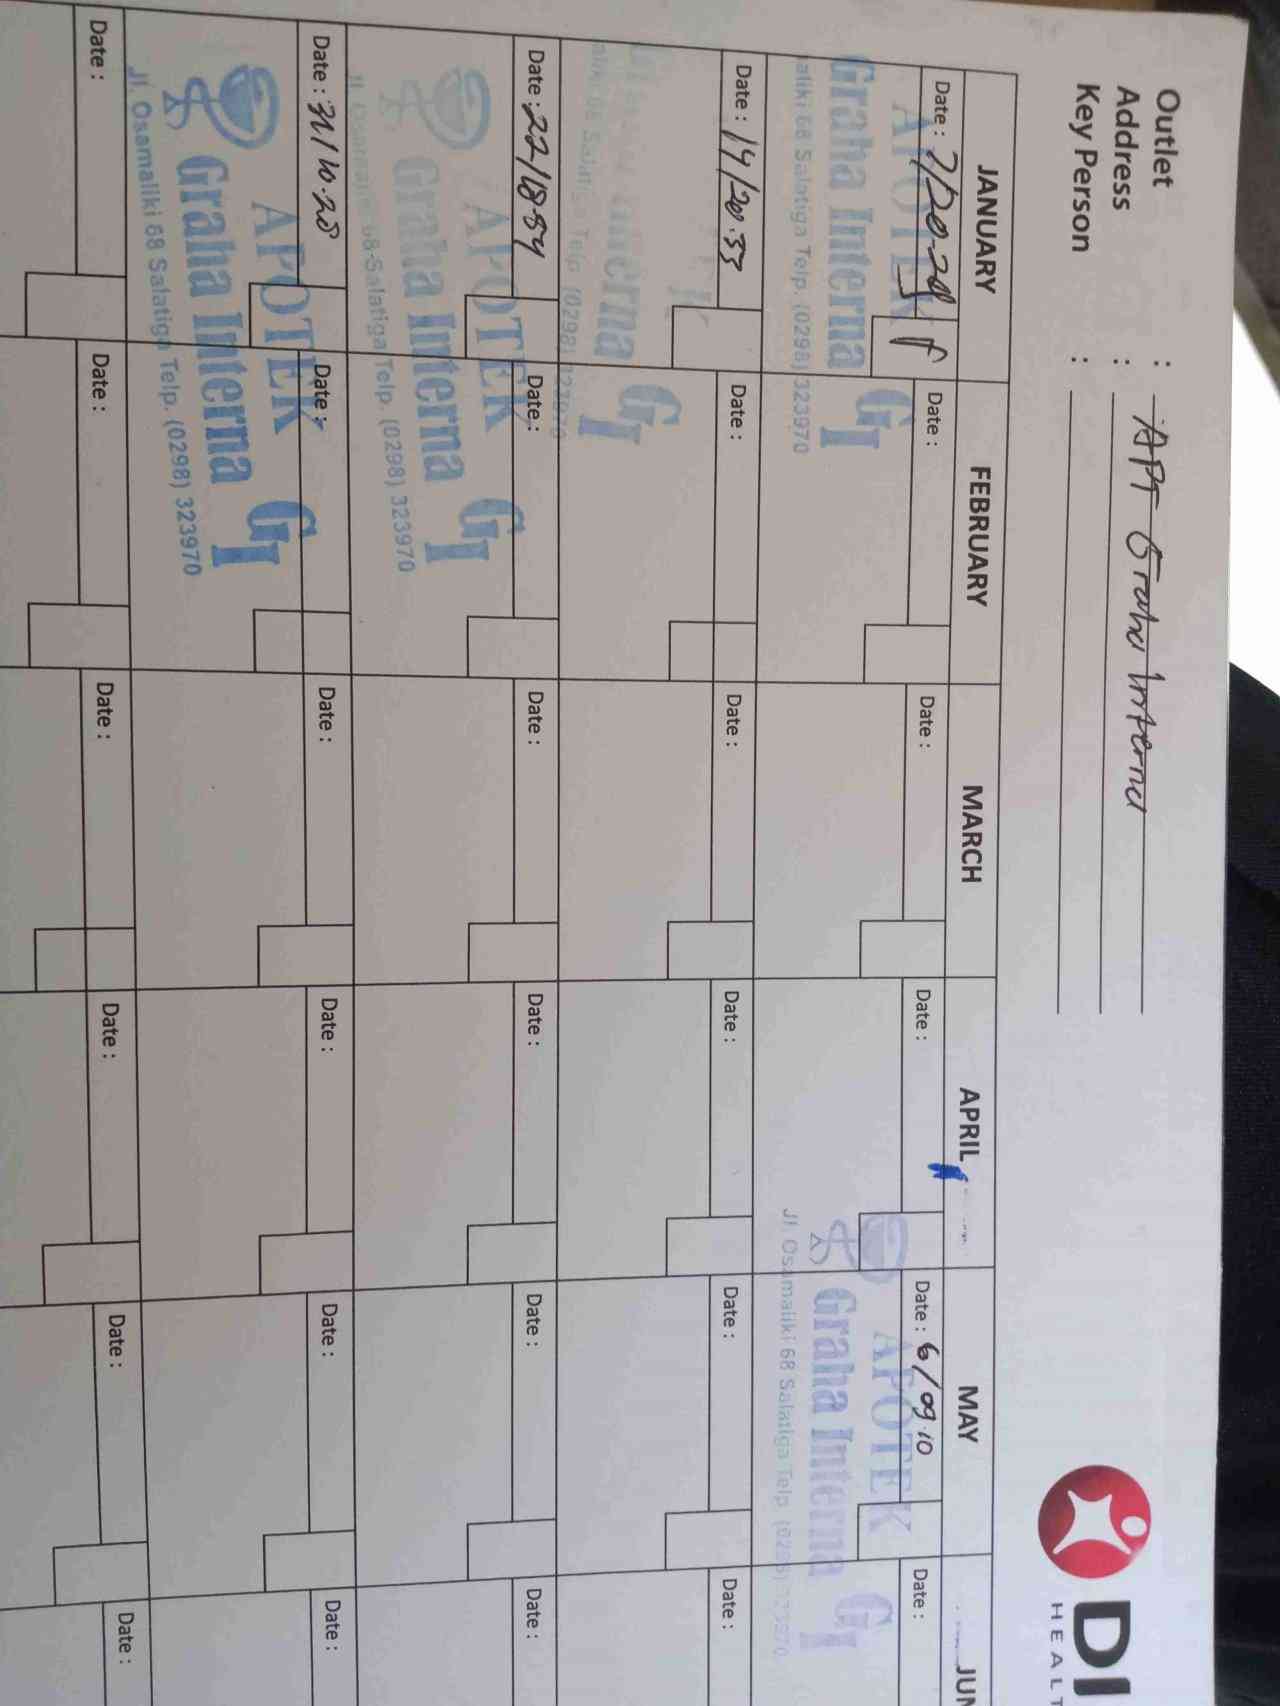 Outlet : APT Graha Interna
Address :
Key Person :
DI
HEALT
JANUARY FEBRUARY MARCH APRIL MAY JUN
Date : 7/20-20 Date : Date : Date : Date : 6/09.10 Date :
APOTEK GI
Graha Interna
aliki 68 Salatiga Telp. (0298) 323970
APOTEK GI
Graha Interna
Jl. Osamaliki 68 Salatiga Telp. (0298) 323970
Date : 14/20.33 Date : Date : Date : Date : Date :
K GI
Interna
aliki 68 Salatiga Telp. (0298) 323970
Date : 22/18.54 Date : Date : Date : Date : Date :
APOTEK GI
Graha Interna
Jl. Osamaliki 68 Salatiga Telp. (0298) 323970
Date : 31/10.28 Date : Date : Date : Date : Date :
APOTEK GI
Graha Interna
Jl. Osamaliki 68 Salatiga Telp. (0298) 323970
Date : Date : Date : Date : Date : Date :